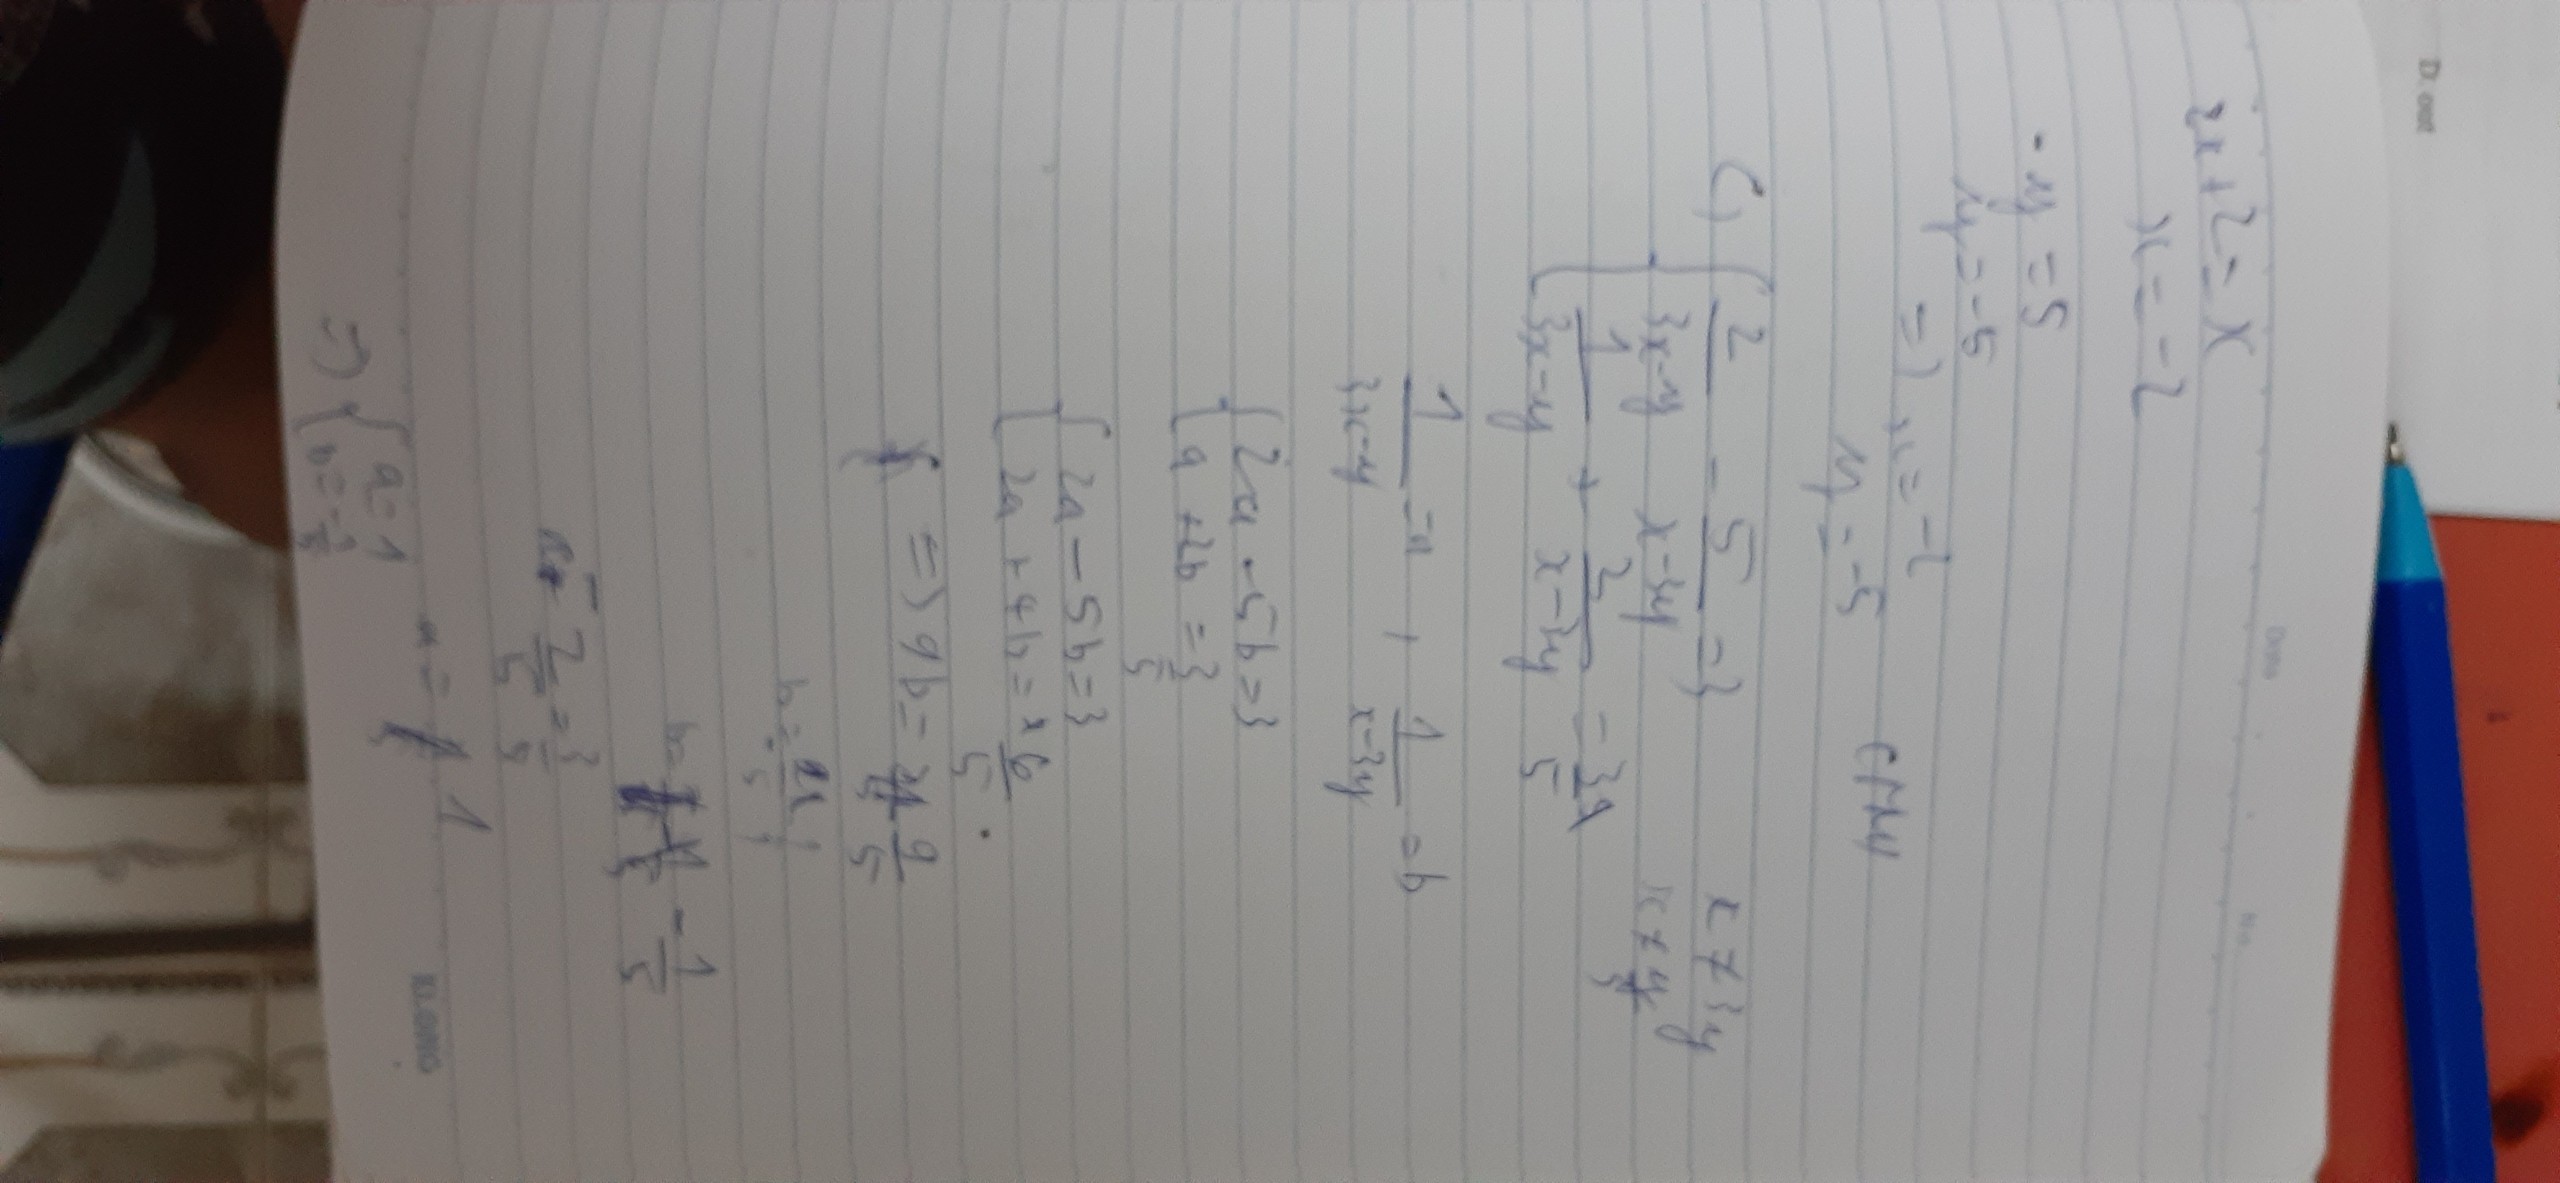 2x+2=x
x=-2
-y=5
y=-5
=) x=-2
y=-5
(TM)
C, { 2/(3x-y) - 5/(x-3y) =3
x ≠ 3y
{ 1/(3x-y) + 2/(x-3y) = 3/5
x ≠ y/3
1/(3x-y) =a , 1/(x-3y) =b
{ 2a-5b=3
{ a+2b=3/5
{ 2a-5b=3
{ 2a+4b=6/5
=) 9b= 9/5
b=
b= -1/5
- 2/5 = 3/5
a= 1
=) { a=1
KLONG